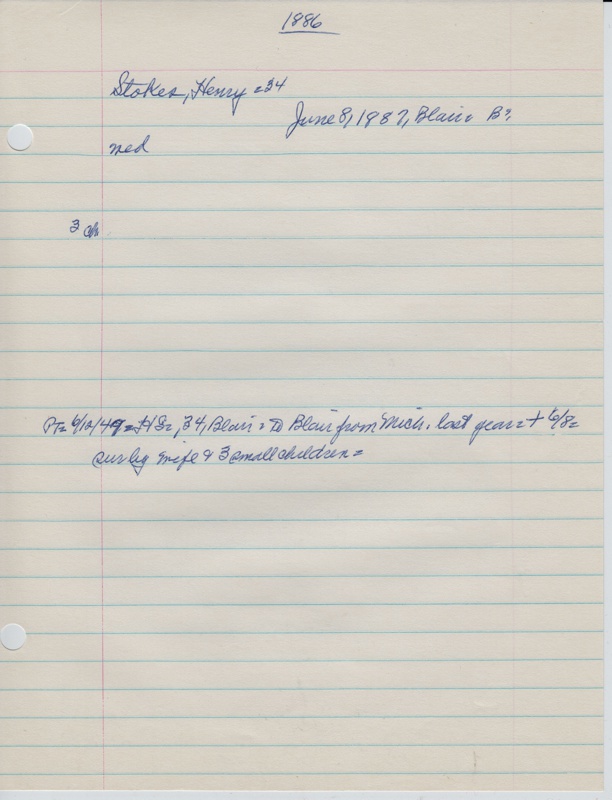 1886
Stokes, Henry = 34
June 8, 1887, Blair = B?
med
3 ch.
PT= 6/12/4 = HS=, 34, Blair = to Blair from Mich. last year = + 6/8=
sur by wife & 3 small children =